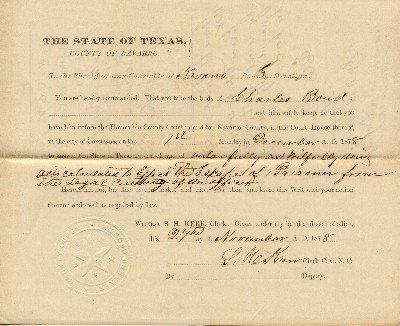 THE STATE OF TEXAS,
COUNTY OF NAVARRO.
To the Sheriff or any Constable of Navarro County, Greeting:
You are hereby commanded, That you take the body of Charles Bond
and him safely keep so that you
have him before the Honorable County Court and for Navarro County, at the Court House thereof,
in the city of Corsicana, on the 1st Monday in December A. D. 1878
to answer the State of Texas unlawfully and wilfully doing
acts calculated to effect the Escape of a Prisoner from
the Legal Custody of an officer
Herein fail not, but and have you then and there this Writ with your action
thereon endorsed as required by law.
Witness, S. H. KERR, Clerk. Given under my hand and seal of office,
this 27th day of November A. D. 1878.
S. H. Kerr Clerk C. C. N. C.
By Deputy.